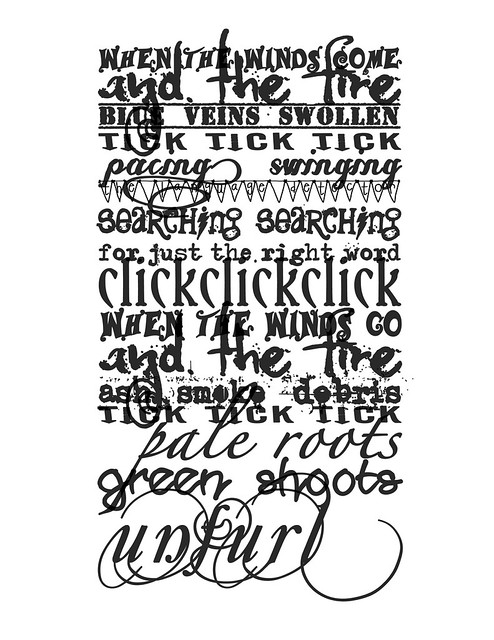 WHEN THE WINDS COME
and the fire
BLUE VEINS SWOLLEN
TICK TICK TICK
pacing swinging
the language detection
SEARCHING SEARCHING
for just the right word
clickclickclick
WHEN THE WINDS GO
and the fire
ash smoke debris
TICK TICK TICK
pale roots
green shoots
unfurl